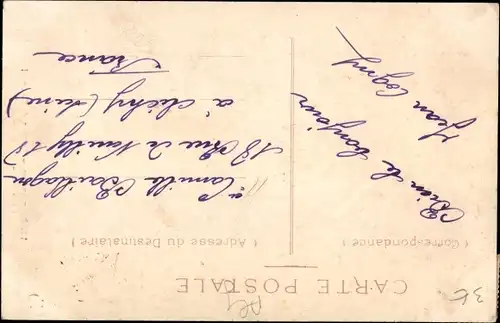 CARTE POSTALE
( Correspondance )
( Adresse du Destinataire )
Bien le bonjour
Jean
Camille
18 Rue de Neuilly 18
à Clichy (Seine)
France
3k